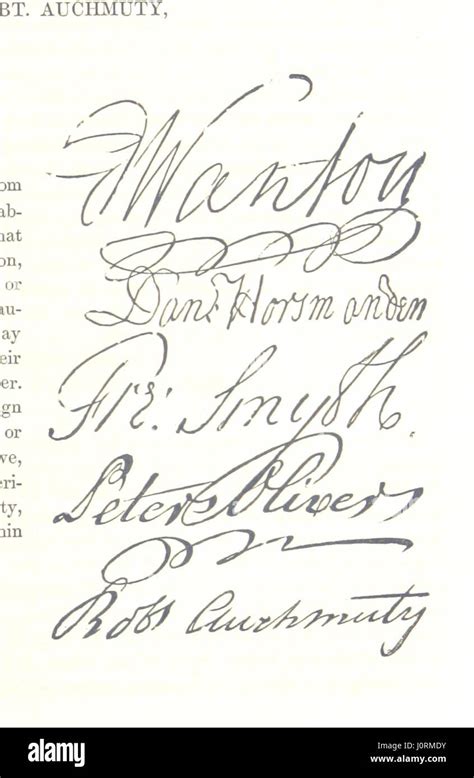 BT. AUCHMUTY,
JWanton
Danl Horsmanden
Fre: Smyth.
Peter Oliver
Robt Auchmuty
om
ab-
hat
on,
or
au-
ay
eir
er.
gn
or
we,
eri-
ty,
nin
alamy stock photo
J0RMDY